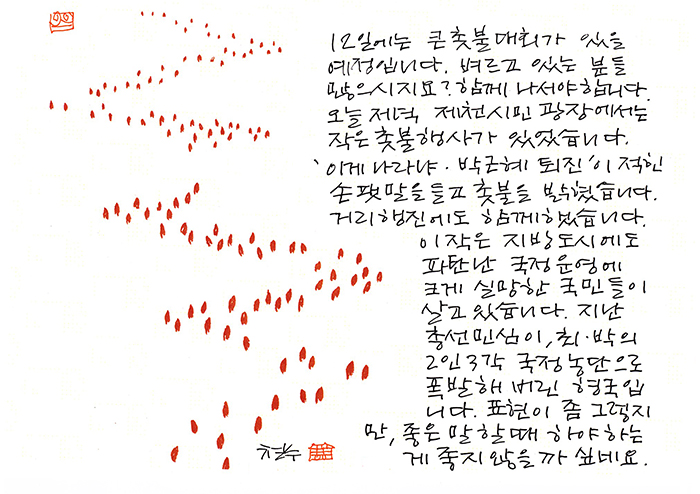 12일에는 큰 촛불대회가 있을
예정입니다. 벼르고 있는 분들
많으시지요? 함께 나서야 합니다.
오늘 저녁 제천시민 광장에서는
작은 촛불행사가 있었습니다.
'이게 나라냐 · 박근혜 퇴진'이 적힌
손팻말을 들고 촛불을 밝혔습니다.
거리행진에도 함께 했습니다.
이 작은 지방도시에도
파탄난 국정운영에
크게 실망한 국민들이
살고 있습니다. 지난
총선민심이, 최·박의
2인3각 국정농단으로
폭발해 버린 형국입
니다. 표현이 좀 그렇지
만, 좋은 말 할 때 하야하는
게 좋지 않을까 싶네요.